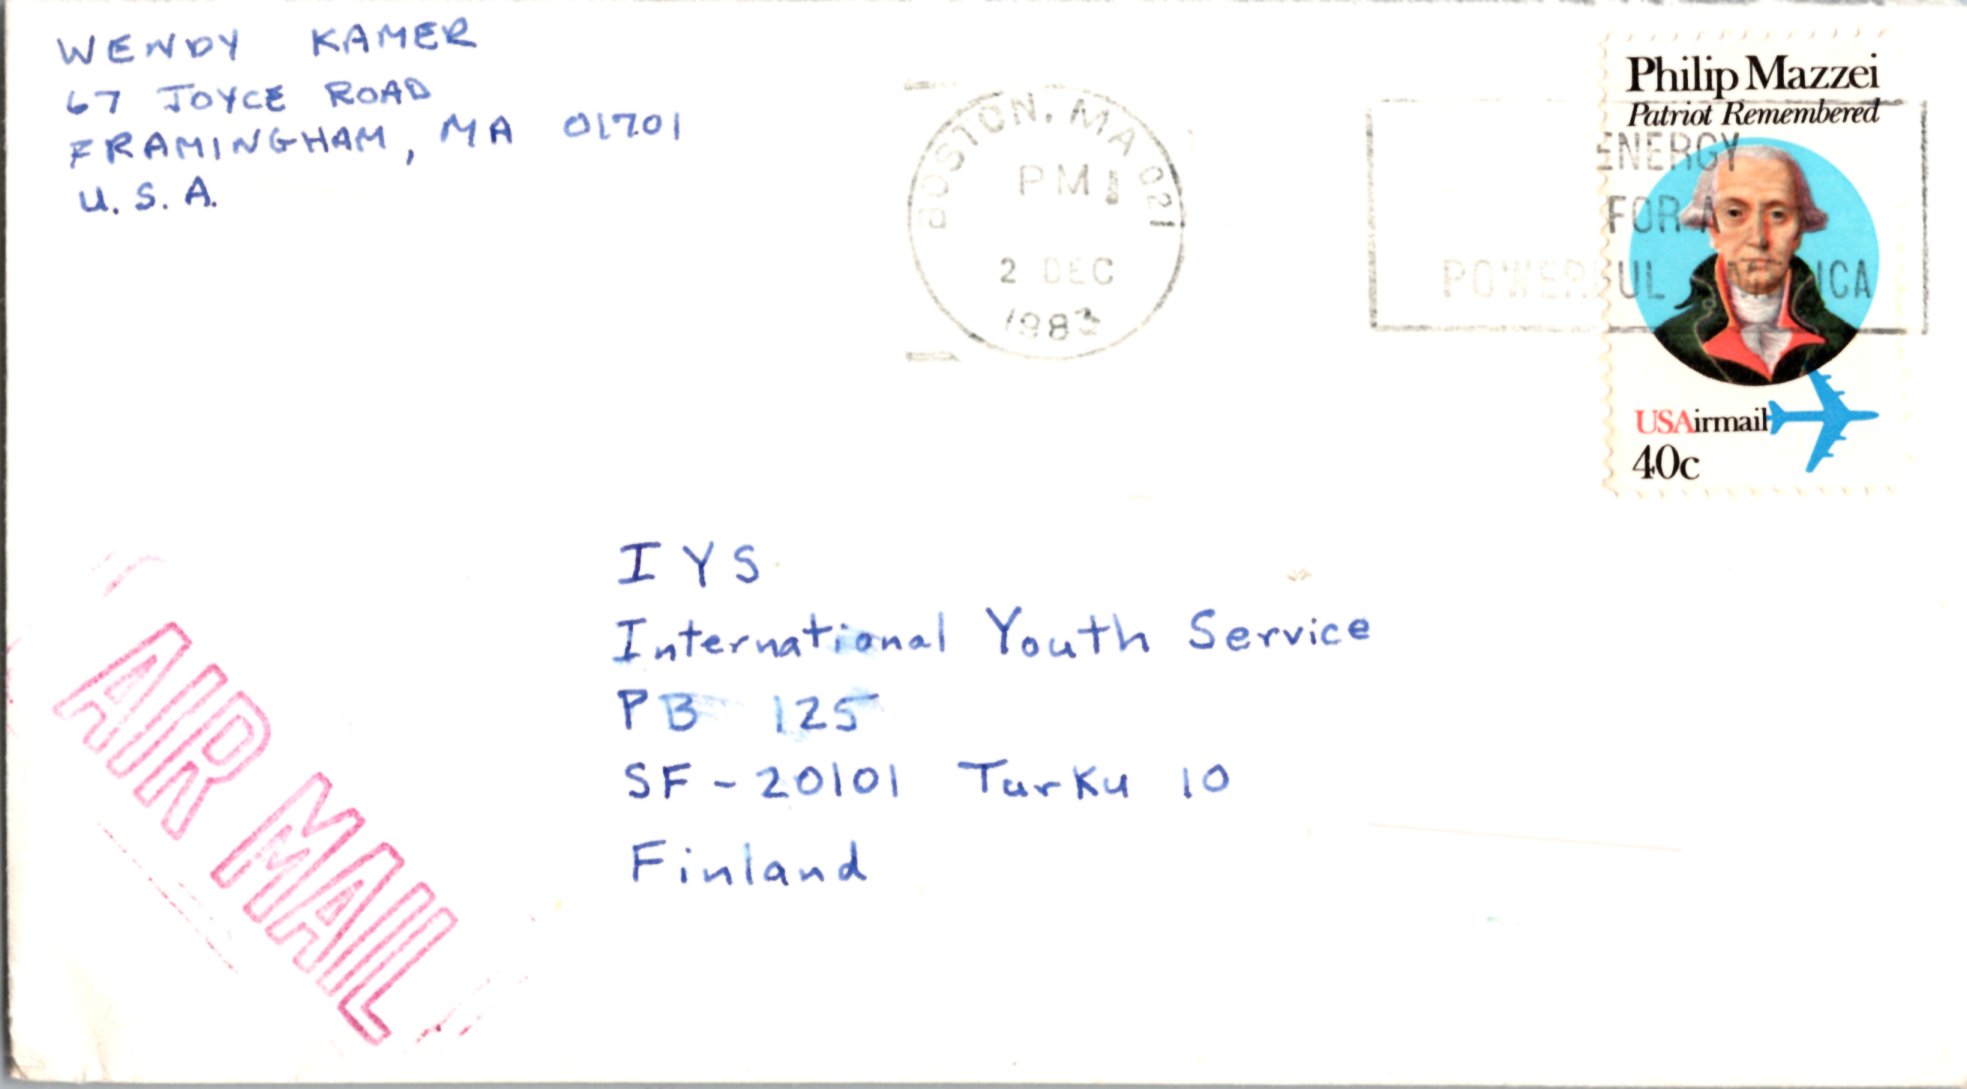 WENDY KAMER
67 JOYCE ROAD
FRAMINGHAM, MA 01701
U.S.A.
BOSTON, MA 021
PM
2 DEC
1983
ENERGY
FOR A
POWERFUL AMERICA
Philip Mazzei
Patriot Remembered
USAirmail
40c
AIR MAIL
IYS
International Youth Service
PB 125
SF-20101 Turku 10
Finland